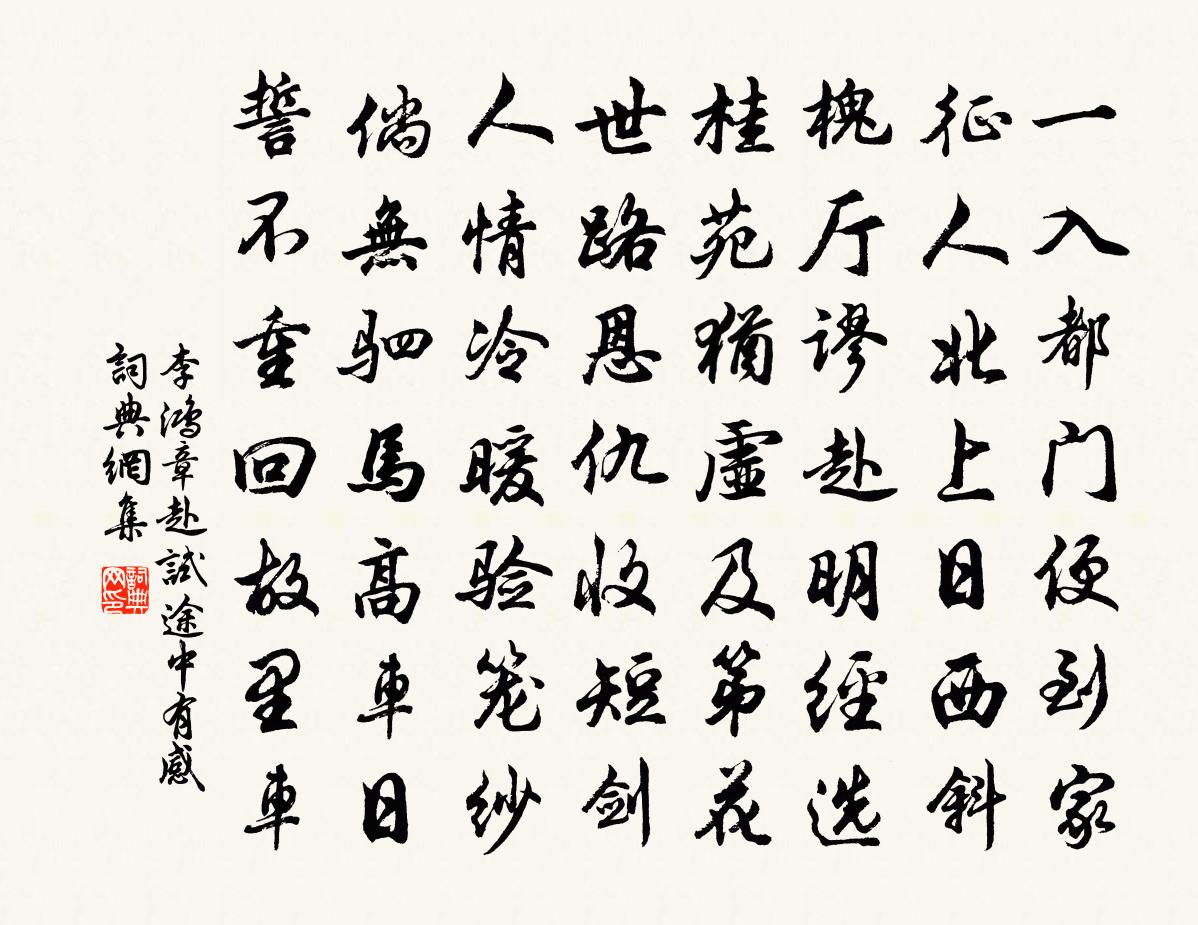 一入都门便到家
征人北上日西斜
槐厅谬赴明經选
桂苑猶虚及第花
世路恩仇收短剑
人情冷暖验笼纱
倘無驷馬高車日
誓不重回故里車
李鴻章赴試途中有感
詞典網集
詞典網印